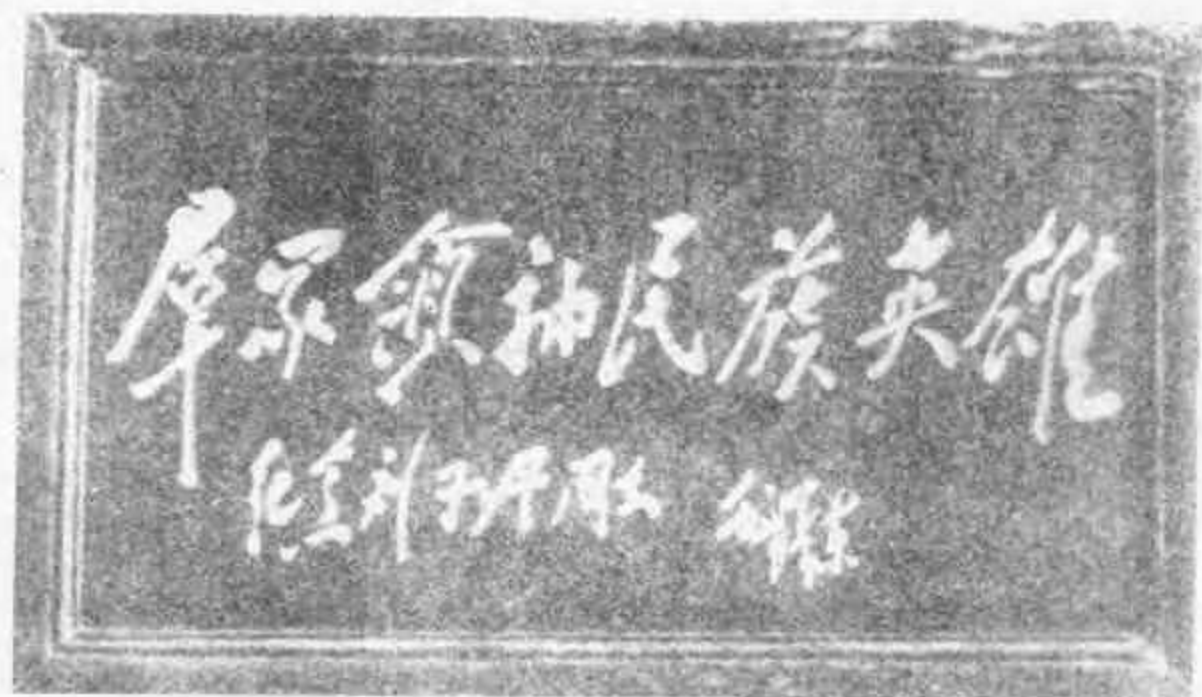 羣众領袖民族英雄
纪念刘子丹同志 毛泽东